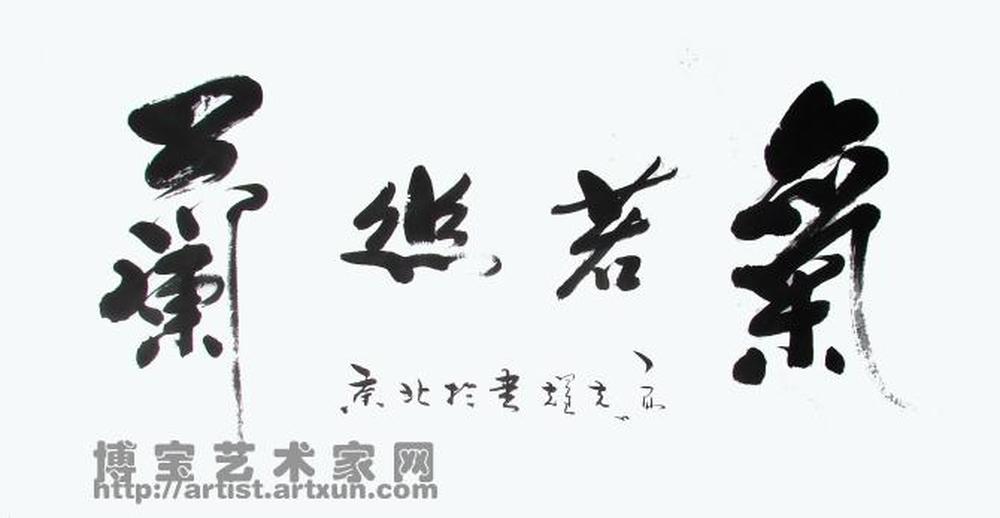 氣若幽蘭
書於北京
博宝艺术家网
http://artist.artxun.com